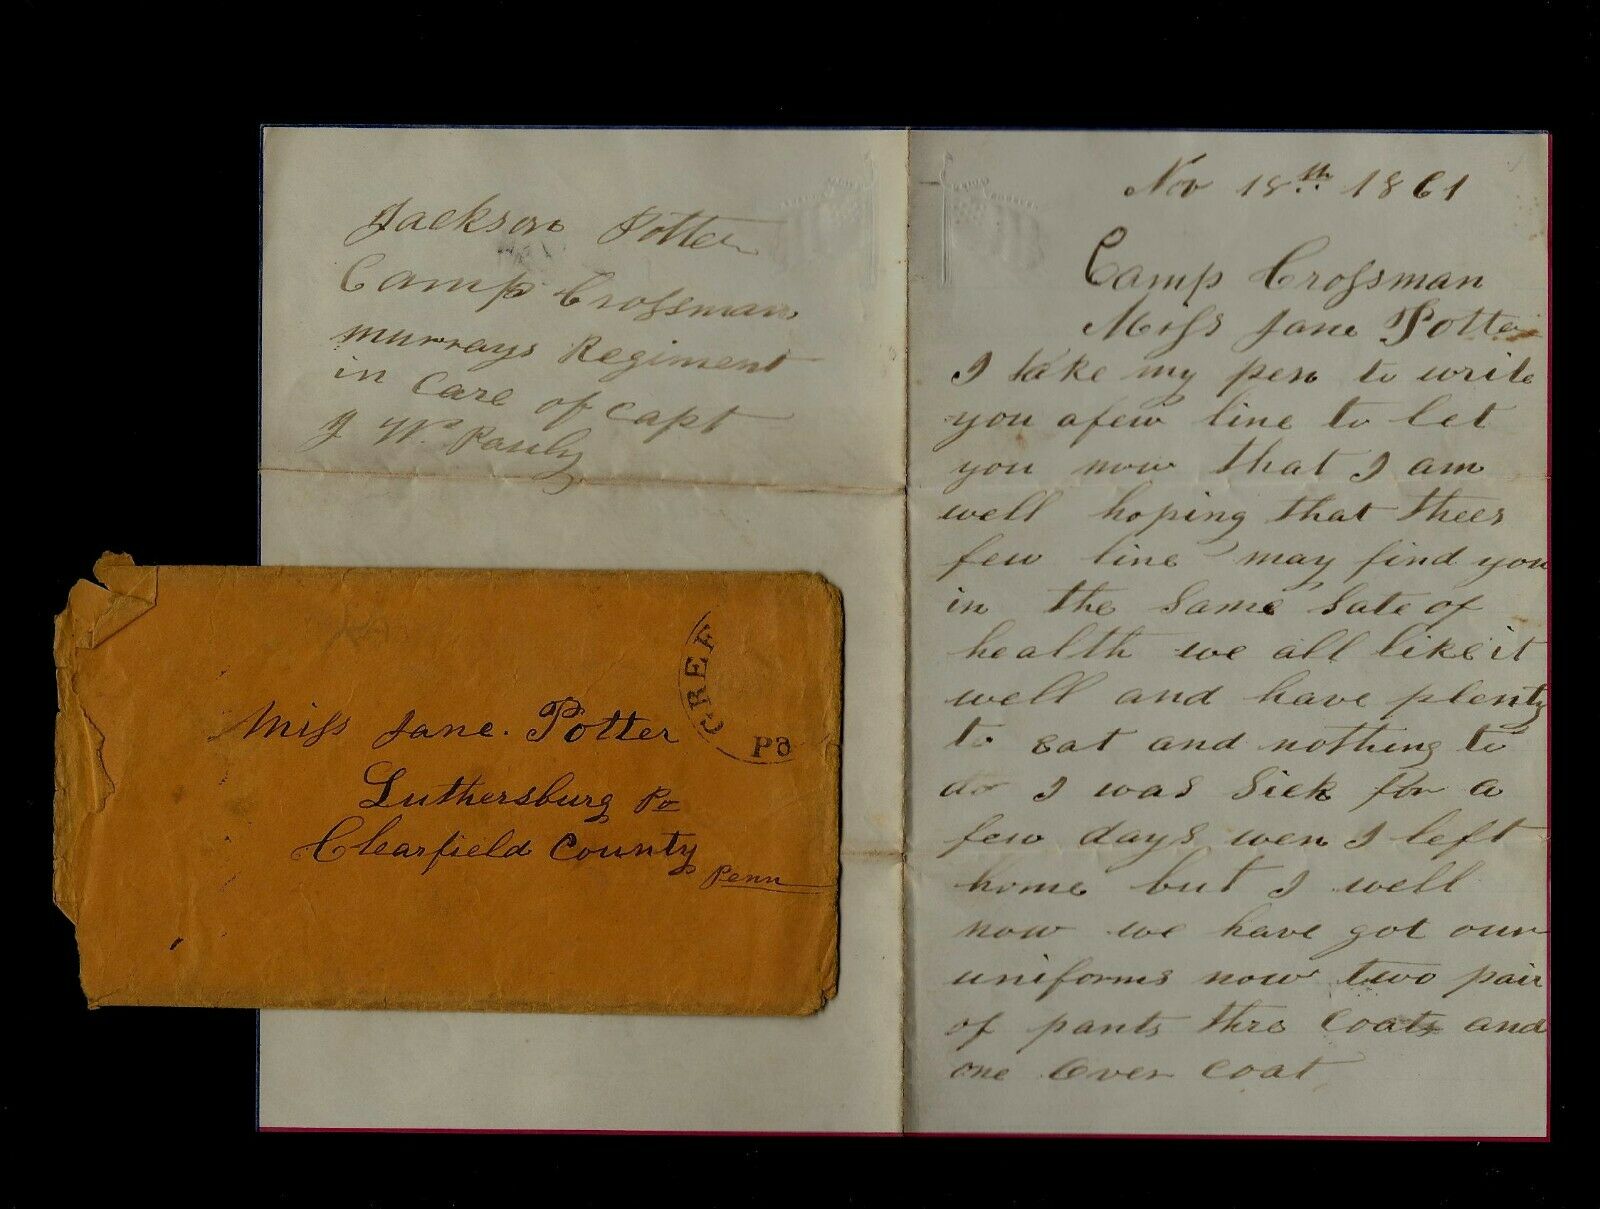 Jackson Potter
Camp Crossman
murrays Regiment
in Care of Capt
J W. Pauly
Nov 18th 1861
Camp Crossman
Miss Jane Potter
I take my pen to write
you afew line to let
you now that I am
well hoping that thees
few line may find you
in the Same Sate of
health we all like it
well and have plenty
to eat and nothing to
do I was Sick for a
few days wen I left
home but I well
now we have got our
uniforms now two pair
of pants thre Coats and
one Over Coat
GREE
PA
Miss Jane. Potter
Luthersburg Po
Clearfield County
Penn